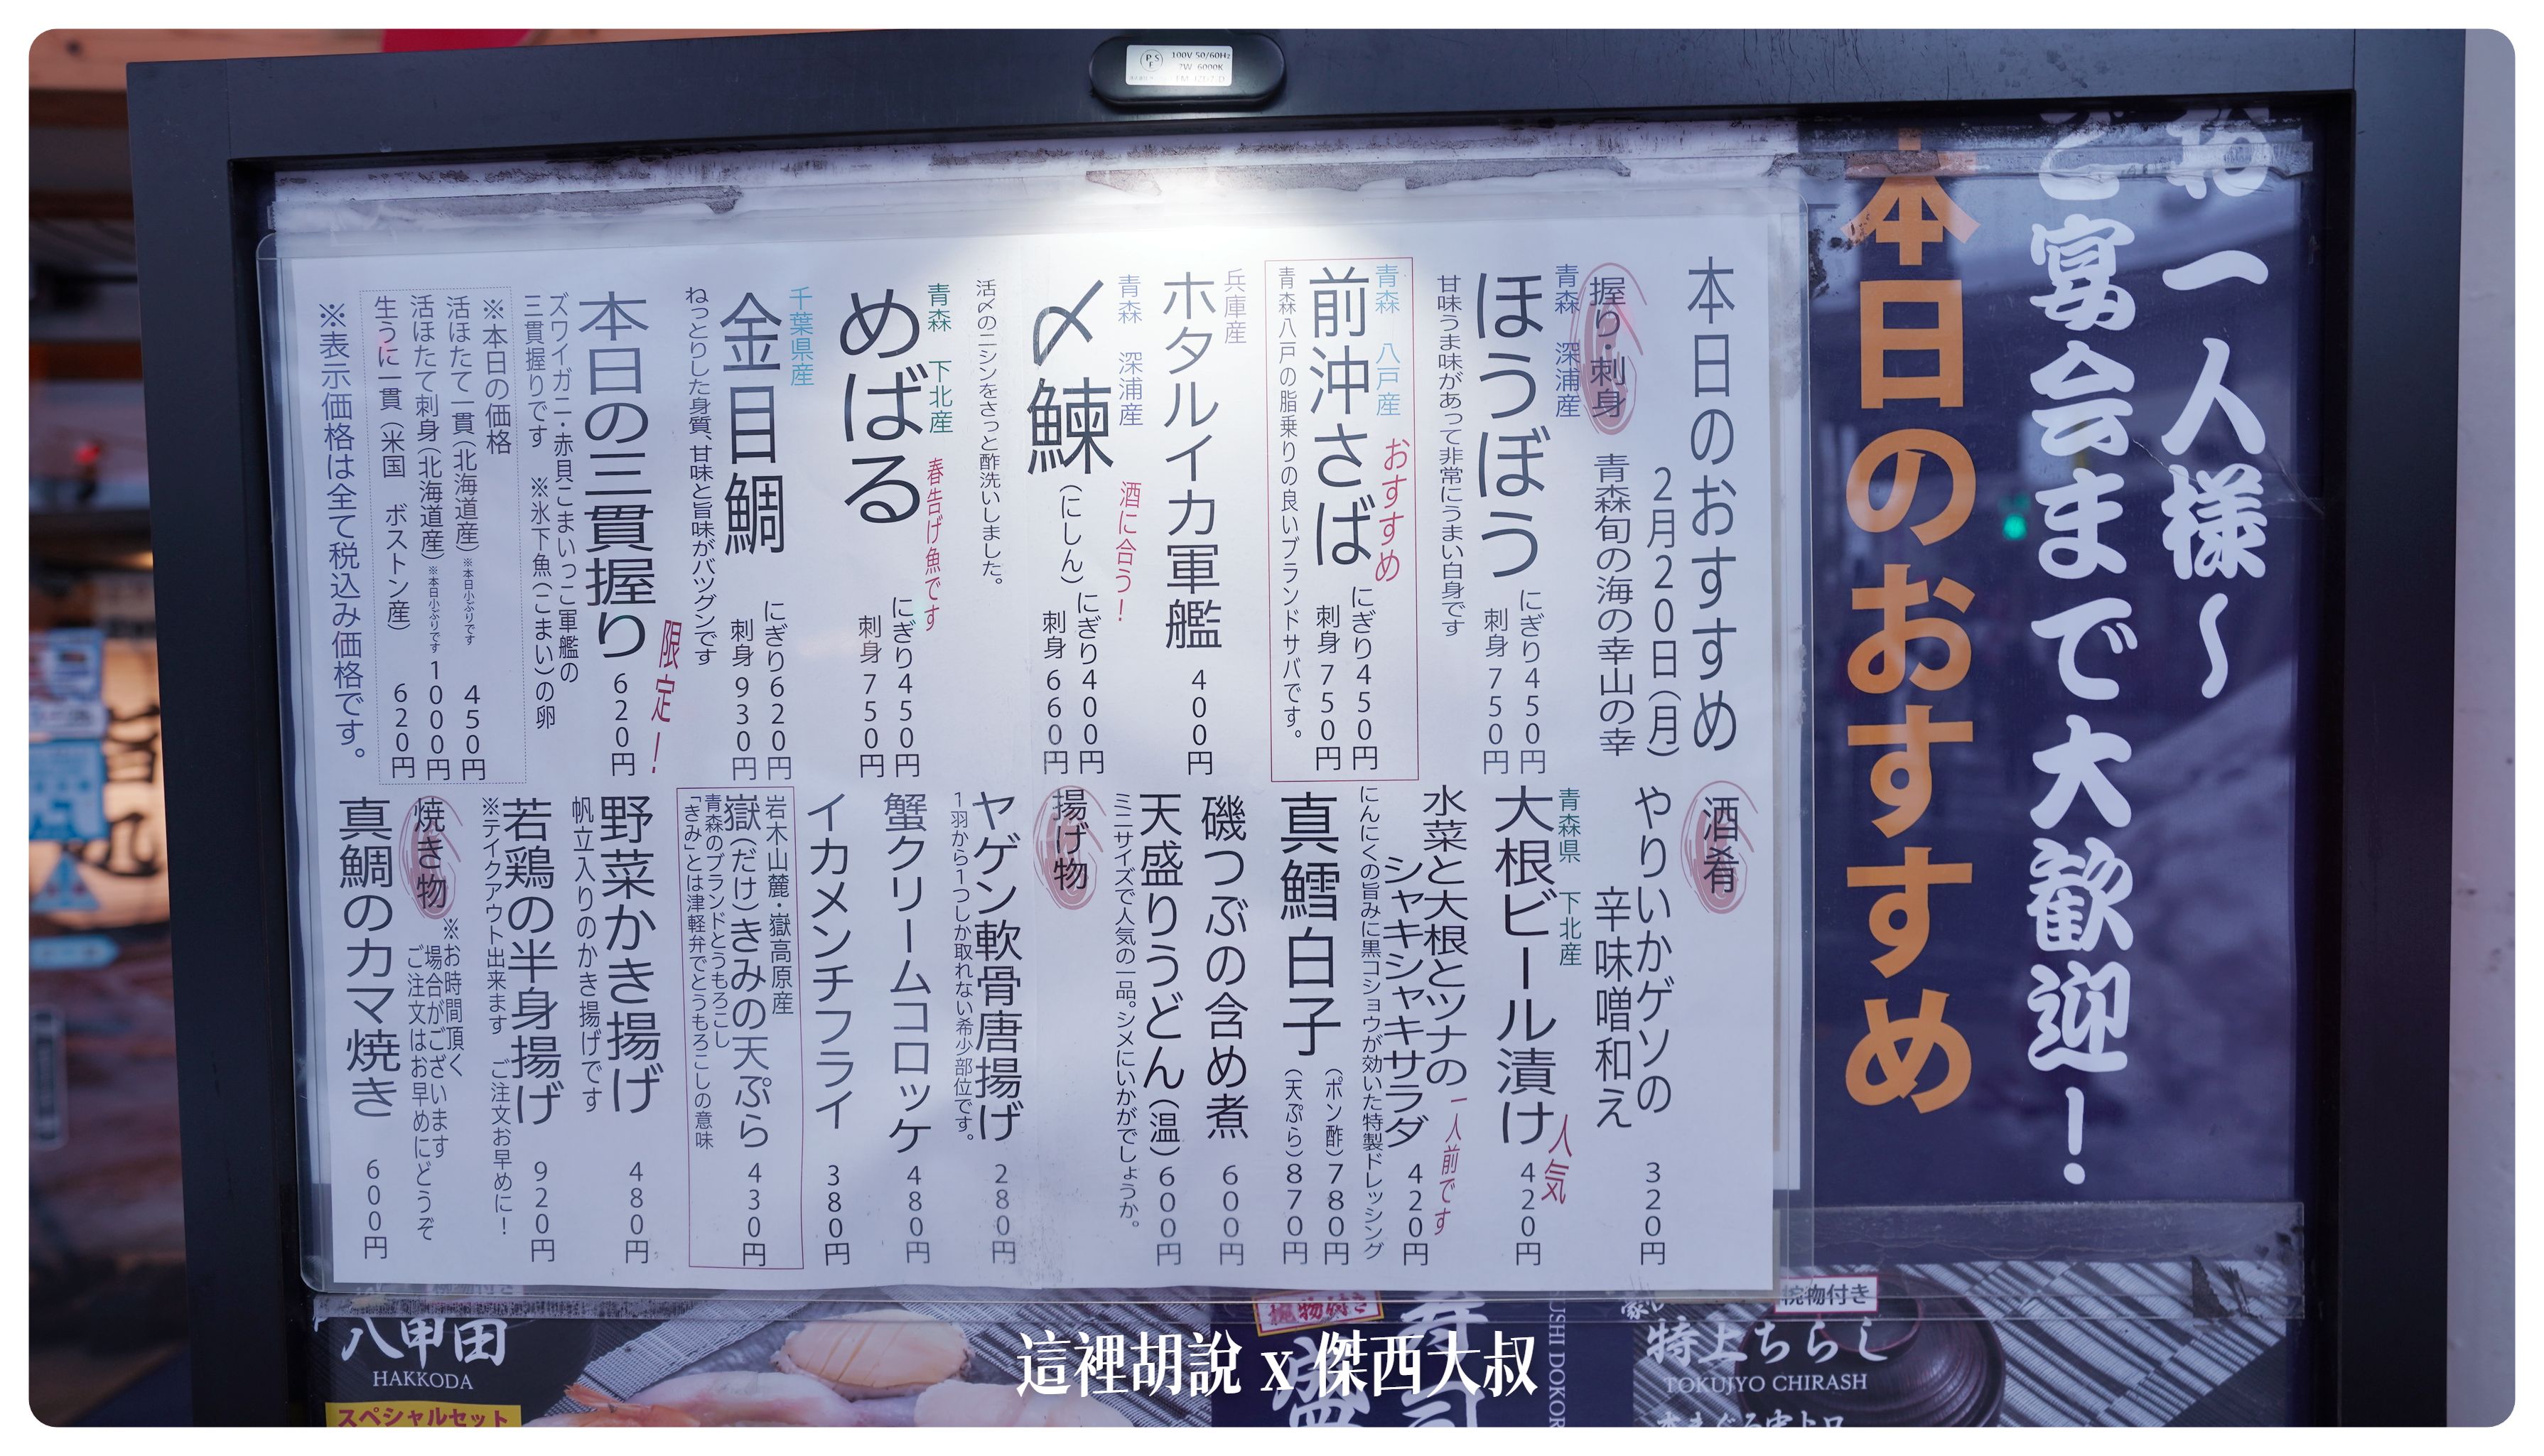 100V 50/60Hz
7W 6000K
お一人様～
ご宴会まで大歓迎！
本日のおすすめ
本日のおすすめ
2月20日（月）
握り・刺身
青森旬の海の幸山の幸
青森 深浦産
ほうぼう
にぎり450円
刺身 750円
甘味うま味があって非常にうまい白身です
青森 八戸産
おすすめ
前沖さば
にぎり450円
刺身 750円
青森八戸の脂乗りの良いブランドサバです。
兵庫産
ホタルイカ軍艦 400円
青森 深浦産
酒に合う！
〆鰊（にしん）
にぎり400円
刺身 660円
活〆のニシンをさっと酢洗いしました。
青森 下北産
春告げ魚です
めばる
にぎり450円
刺身 750円
千葉県産
金目鯛
にぎり620円
刺身 930円
ねっとりした身質、甘味と旨味がバツグンです
限定！
本日の三貫握り 620円
ズワイガニ・赤貝こまいっこ軍艦の
三貫握りです ※氷下魚（こまい）の卵
※本日の価格
活ほたて一貫（北海道産）※本日小ぶりです 450円
活ほたて刺身（北海道産）※本日小ぶりです 1000円
生うに一貫（米国 ボストン産） 620円
※表示価格は全て税込み価格です。
酒肴
やりいかゲソの
辛味噌和え 320円
青森県 下北産
大根ビール漬け 420円
人気
水菜と大根とツナの
シャキシャキサラダ 420円
一人前です
にんにくの旨みに黒コショウが効いた特製ドレッシング
真鱈白子
（ポン酢）780円
（天ぷら）870円
磯つぶの含め煮 600円
天盛りうどん（温）600円
ミニサイズで人気の一品。シメにいかがでしょうか。
揚げ物
ヤゲン軟骨唐揚げ 280円
1羽から1つしか取れない希少部位です。
蟹クリームコロッケ 480円
イカメンチフライ 380円
岩木山麓・嶽高原産
嶽（だけ）きみの天ぷら 430円
青森のブランドとうもろこし
「きみ」とは津軽弁でとうもろこしの意味
野菜かき揚げ 480円
帆立入りのかき揚げです
若鶏の半身揚げ 920円
※テイクアウト出来ます ご注文お早めに！
焼き物
※お時間頂く
場合がございます
ご注文はお早めにどうぞ
真鯛のカマ焼き 600円
八甲田
HAKKODA
スペシャルセット
椀物付き
寿司
椀物付き
特上ちらし
TOKUJYO CHIRASH
這裡胡說 x 傑西大叔